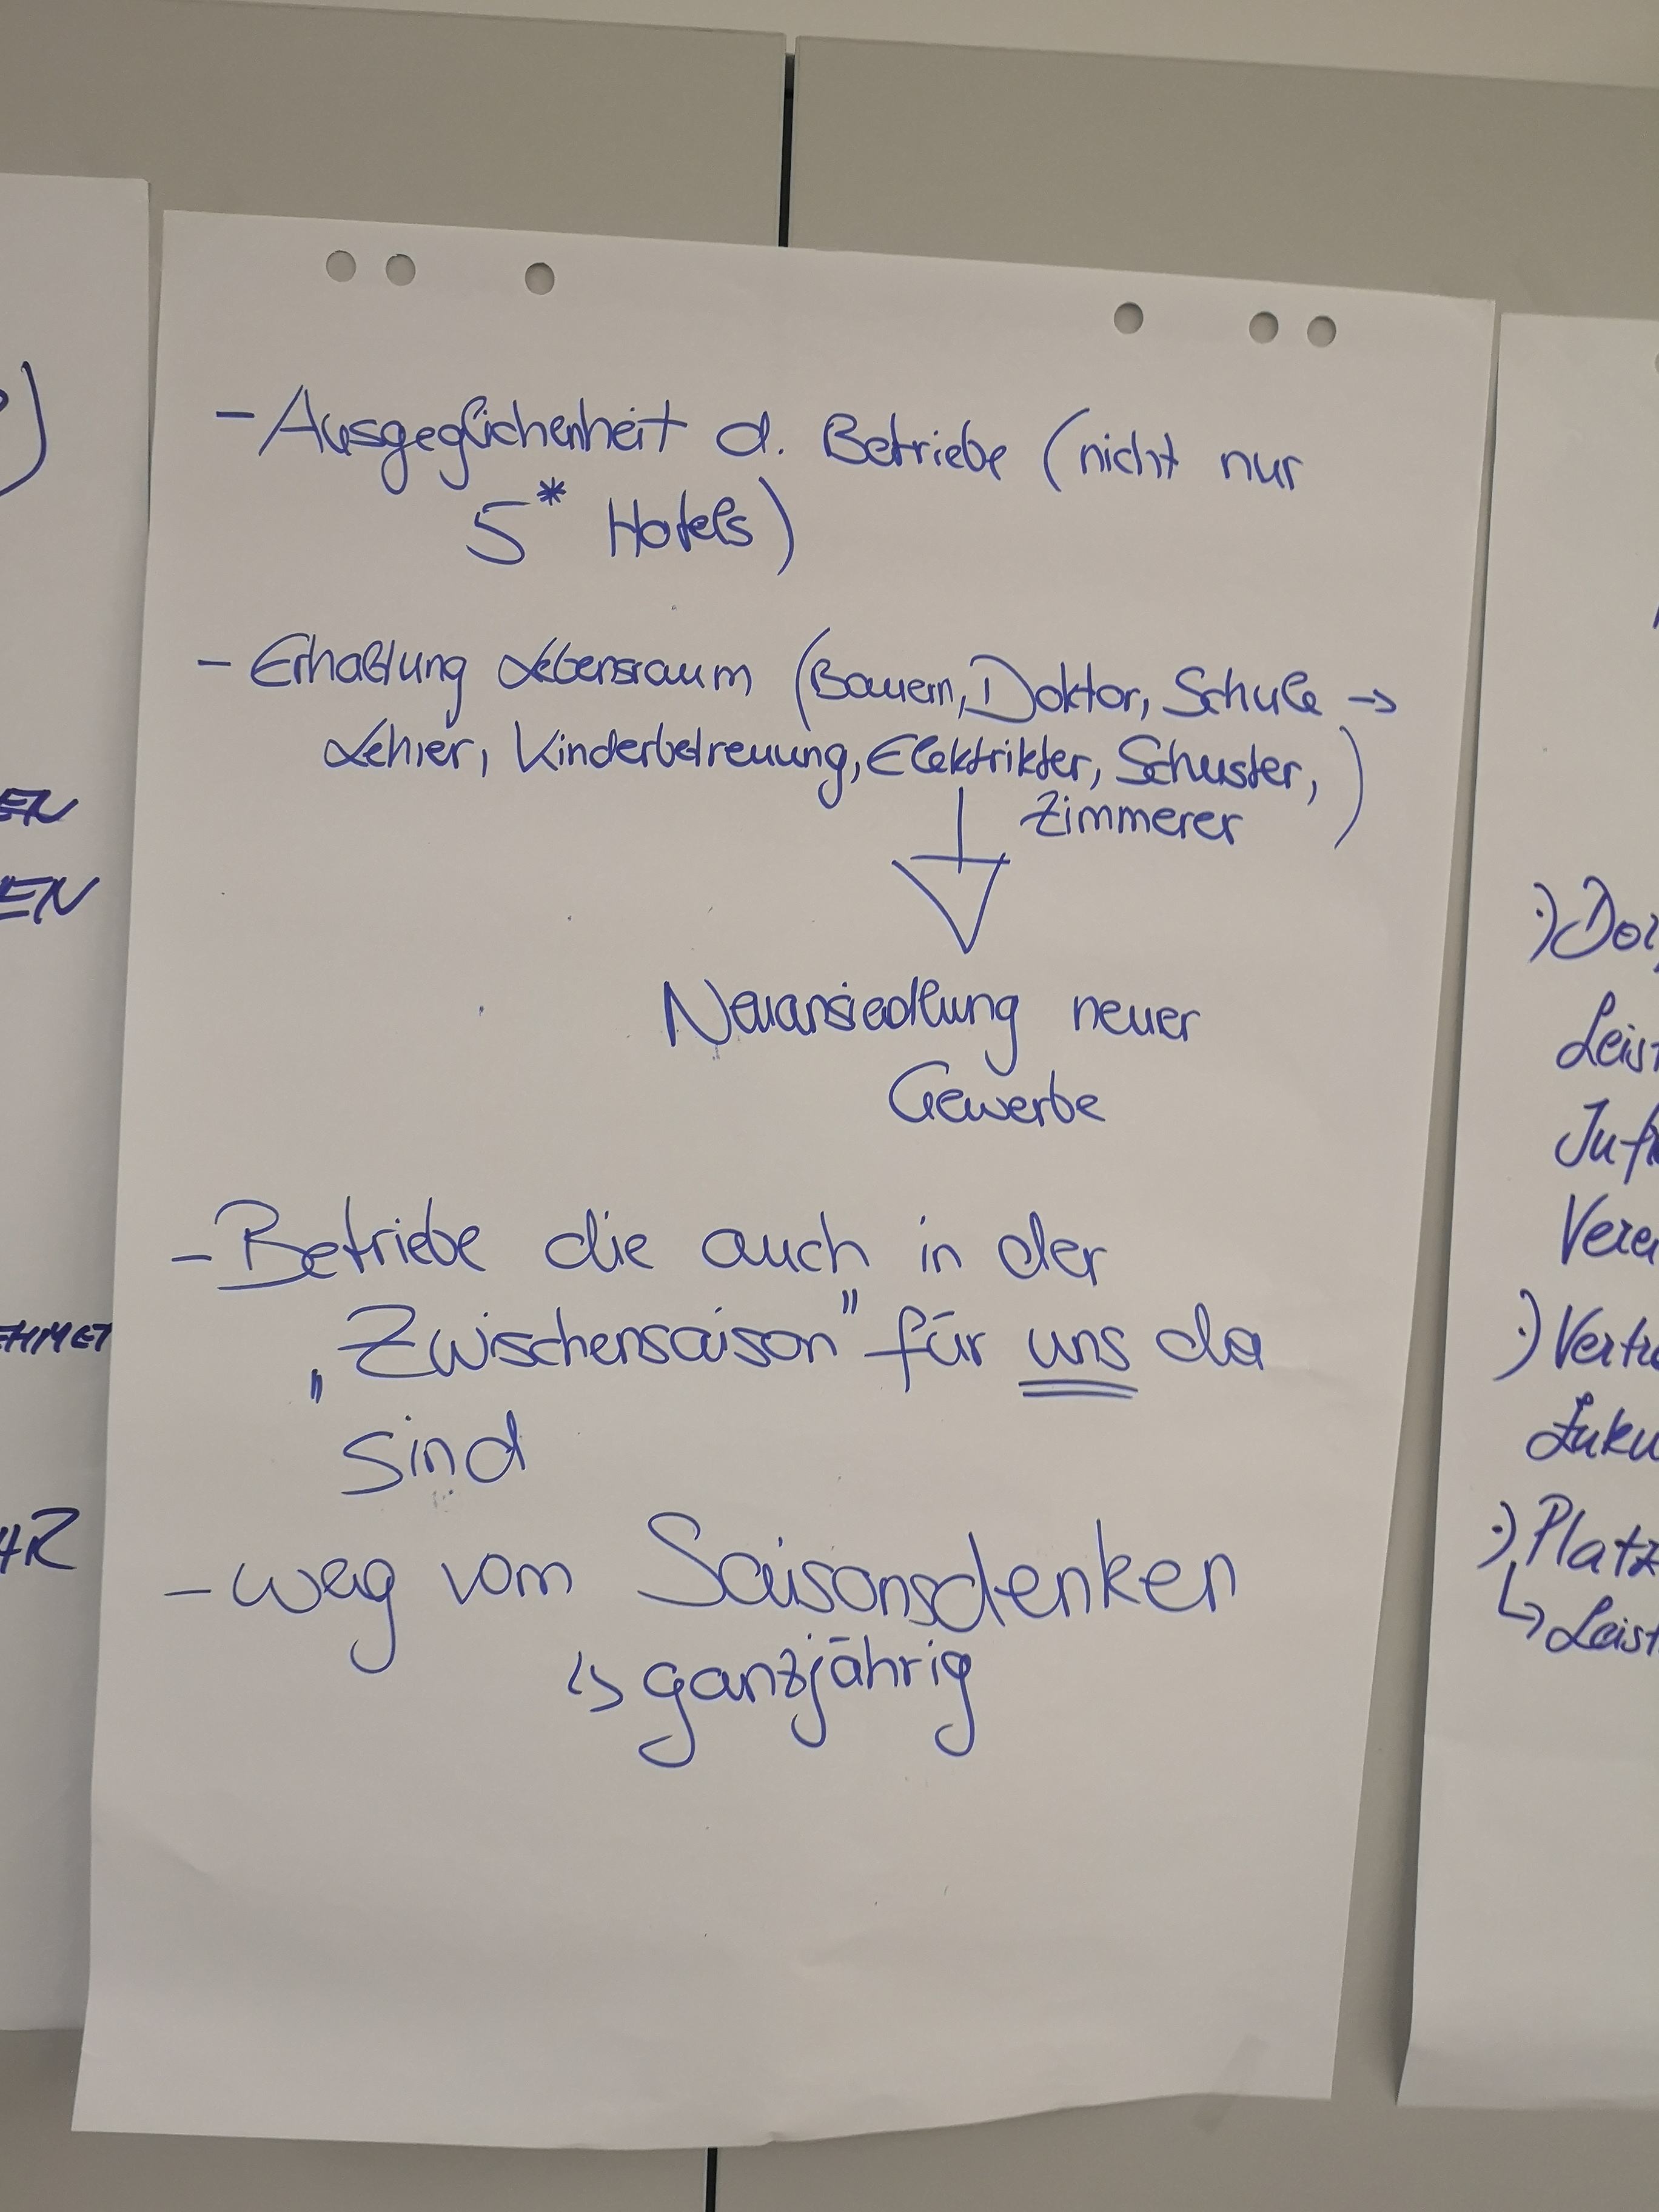 - Ausgeglichenheit d. Betriebe (nicht nur
5* Hotels)
- Erhaltung Lebensraum (Bauern, Doktor, Schule →
Lehrer, Kinderbetreuung, Elektrikter, Schuster,
Zimmerer)
Neuansiedlung neuer
Gewerbe
- Betriebe die auch in der
„Zwischensaison" für uns da
sind
- weg vom Saisonsdenken
↳ ganzjährig
EN
EN
EHMET
HR
:) Dor
Leist
Infr
Verei
:) Vertr
Zuku
:) Platz
↳ Leist